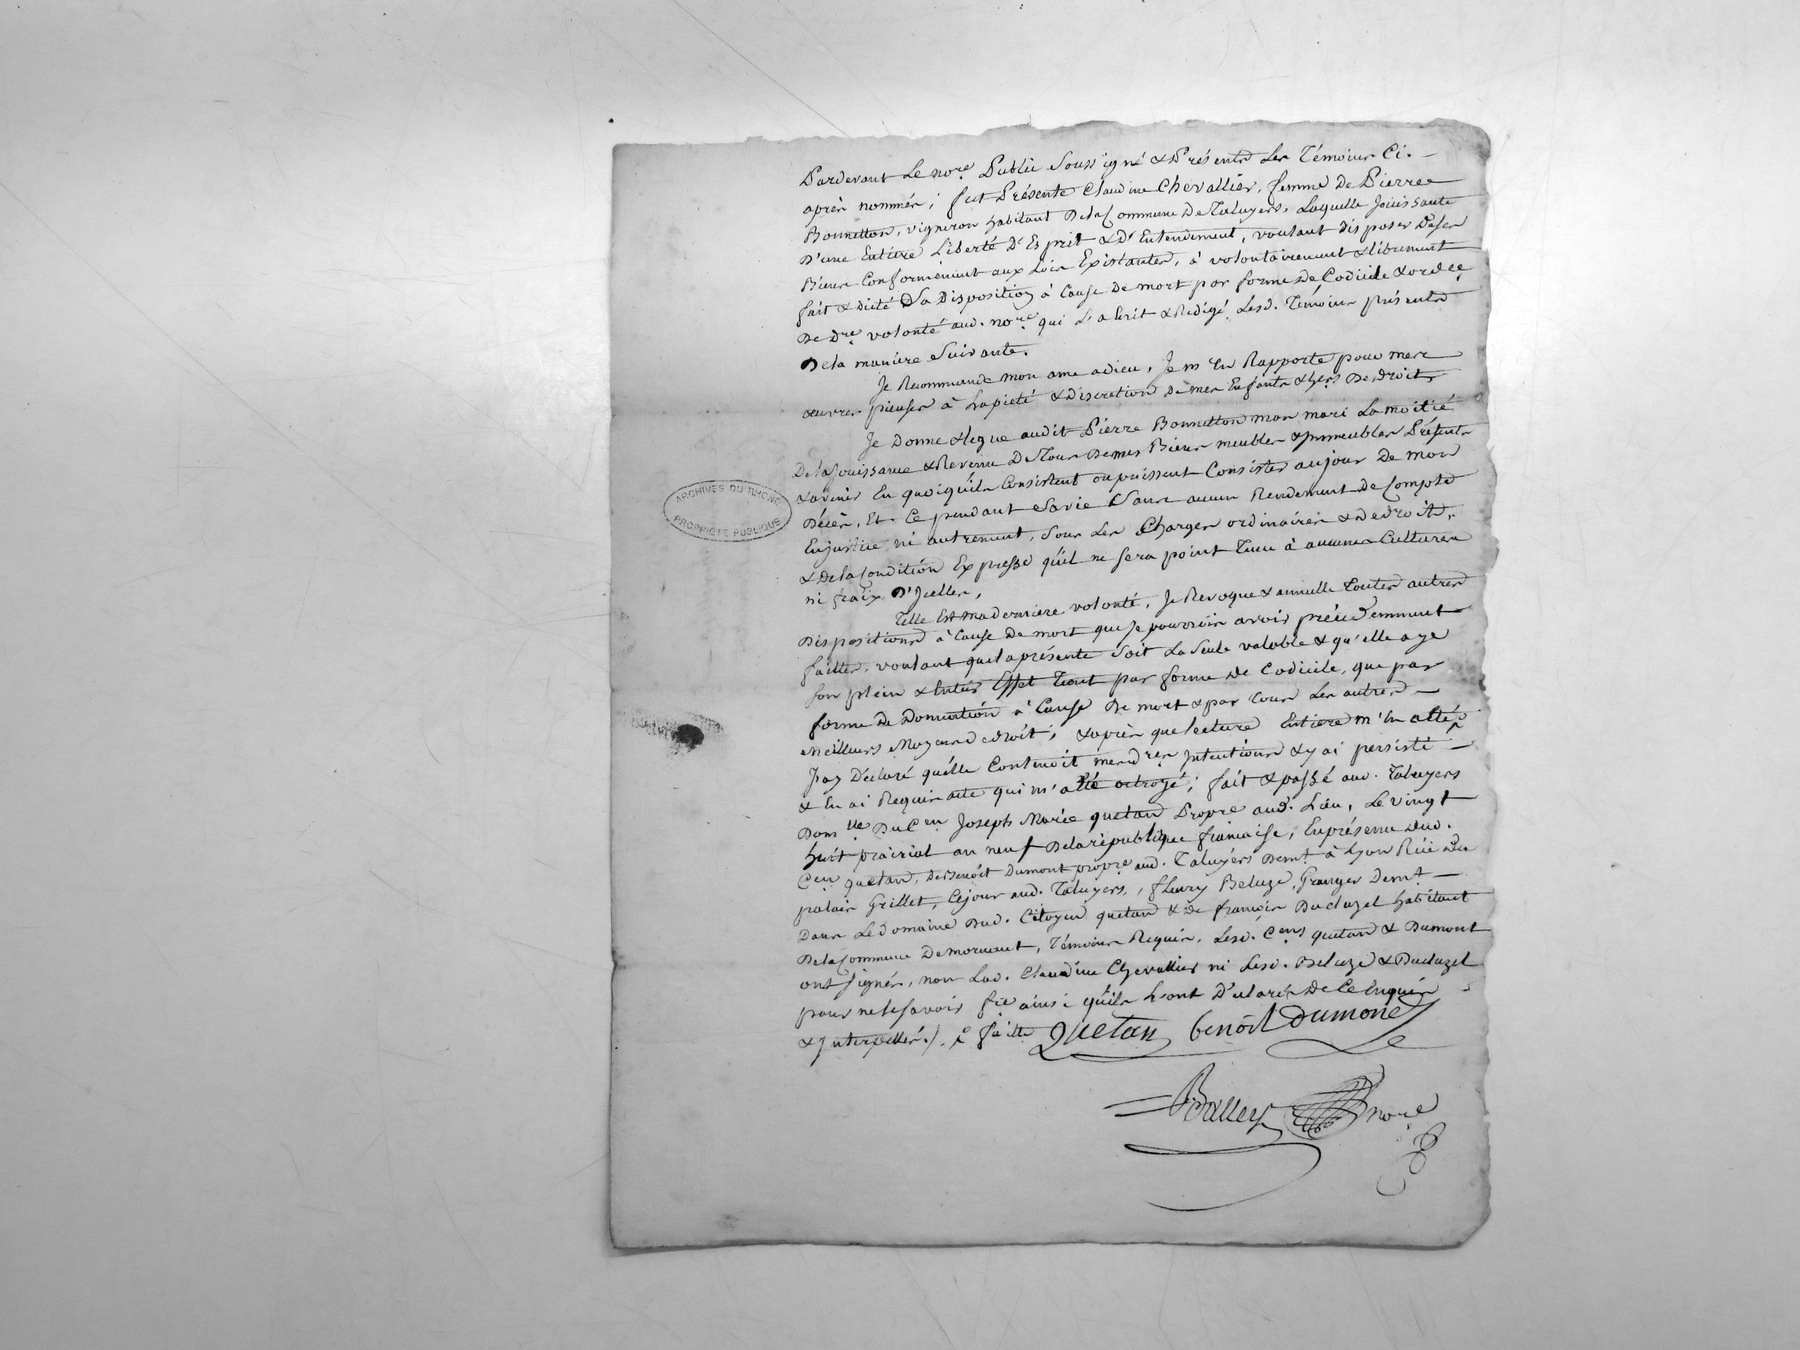 Pardevant Le nore. Public Soussigné & Présents Les Témoins Ci-
après nommés, fut Présente Claudine Chevallier, femme De Pierre
Bonnetton, vigneron habitant De la Commune De Taluyers, Laquelle Jouissante
D'une Entière Liberté D'Esprit & D'Entendement, voulant disposer De ses
Biens Conformément aux Loix Existantes, à volontairement & librement
fait & dicté Sa Disposition à Cause De mort par forme De Codicile & ordce.
De Dre. volonté aud. nore. qui L'a Ecrit & Redigé Lesd. Témoins présents
De la manière Suivante.
Je Recommande mon ame adieu, Je m'En Rapporte pour mes
œuvres pieuses à La pieté & Discretion De mes Enfants & hers De droit
Je Donne & legue audit Pierre Bonnetton mon mari La moitié
De la Jouissance & Revenu De Tous De mes Biens meubles & Immeubles Présents
& avenir En quoiqu'ils Consistent ou puissent Consister au jour De mon
Décès, Et Ce pendant Sa vie Sans aucun Rendement De Compte
En justice ni autrement, Sous Les Charges ordinaires & De droit,
& De la Condition Expresse qu'il ne Sera point Tenu à aucunes Cultures
ni fraix D'Icelles,
Telle Est ma derniere volonté, Je Revoque & annulle Toutes autres
Dispositions à Cause De mort que Je pourrois avoir précédemment
faittes, voulant que la présente Soit La Seule valable & qu'elle aye
Son plein & Entier Effet Tant par forme De Codicile, que par
forme De Donnation à Cause De mort & par Tous Les autres
Meilleurs Moyens de droit; & après que lecture Entiere m'En a Eté
J'ay Déclaré qu'elle Contenoit mes dres. Intentions & y ai persisté
& En ai Requis acte qui m'a Eté octroyé; fait & passé aud. Taluyers
Dom lle Du Cen Joseph Marie quetan Propre aud. Lieu, Le vingt
huit prairial an neuf De la république française, En présence Dud.
Cen quetan, De Benoit Dumont propre aud. Taluyers Demt à Lyon Rüe Du
palais Grillet, Cejour aud. Taluyers, fleury Beluze, Granger Demt
Dans Le domaine Dud. Citoyen quetan & De françois Ducluzel habitant
De la Commune De mornant, Témoins Requis, Lesd. Cens quetan & Dumont
ont Signés, non Lad. Claudine Chevallier ni Lesd. Beluze & Ducluzel
pour ne le Savoir faire ainsi qu'ils L'ont Déclarés De Ce Enquis
& Interpellés./. faitte Quetan benoit Dumonet
Balley nore
ARCHIVES DU RHONE
PROPRIETE PUBLIQUE